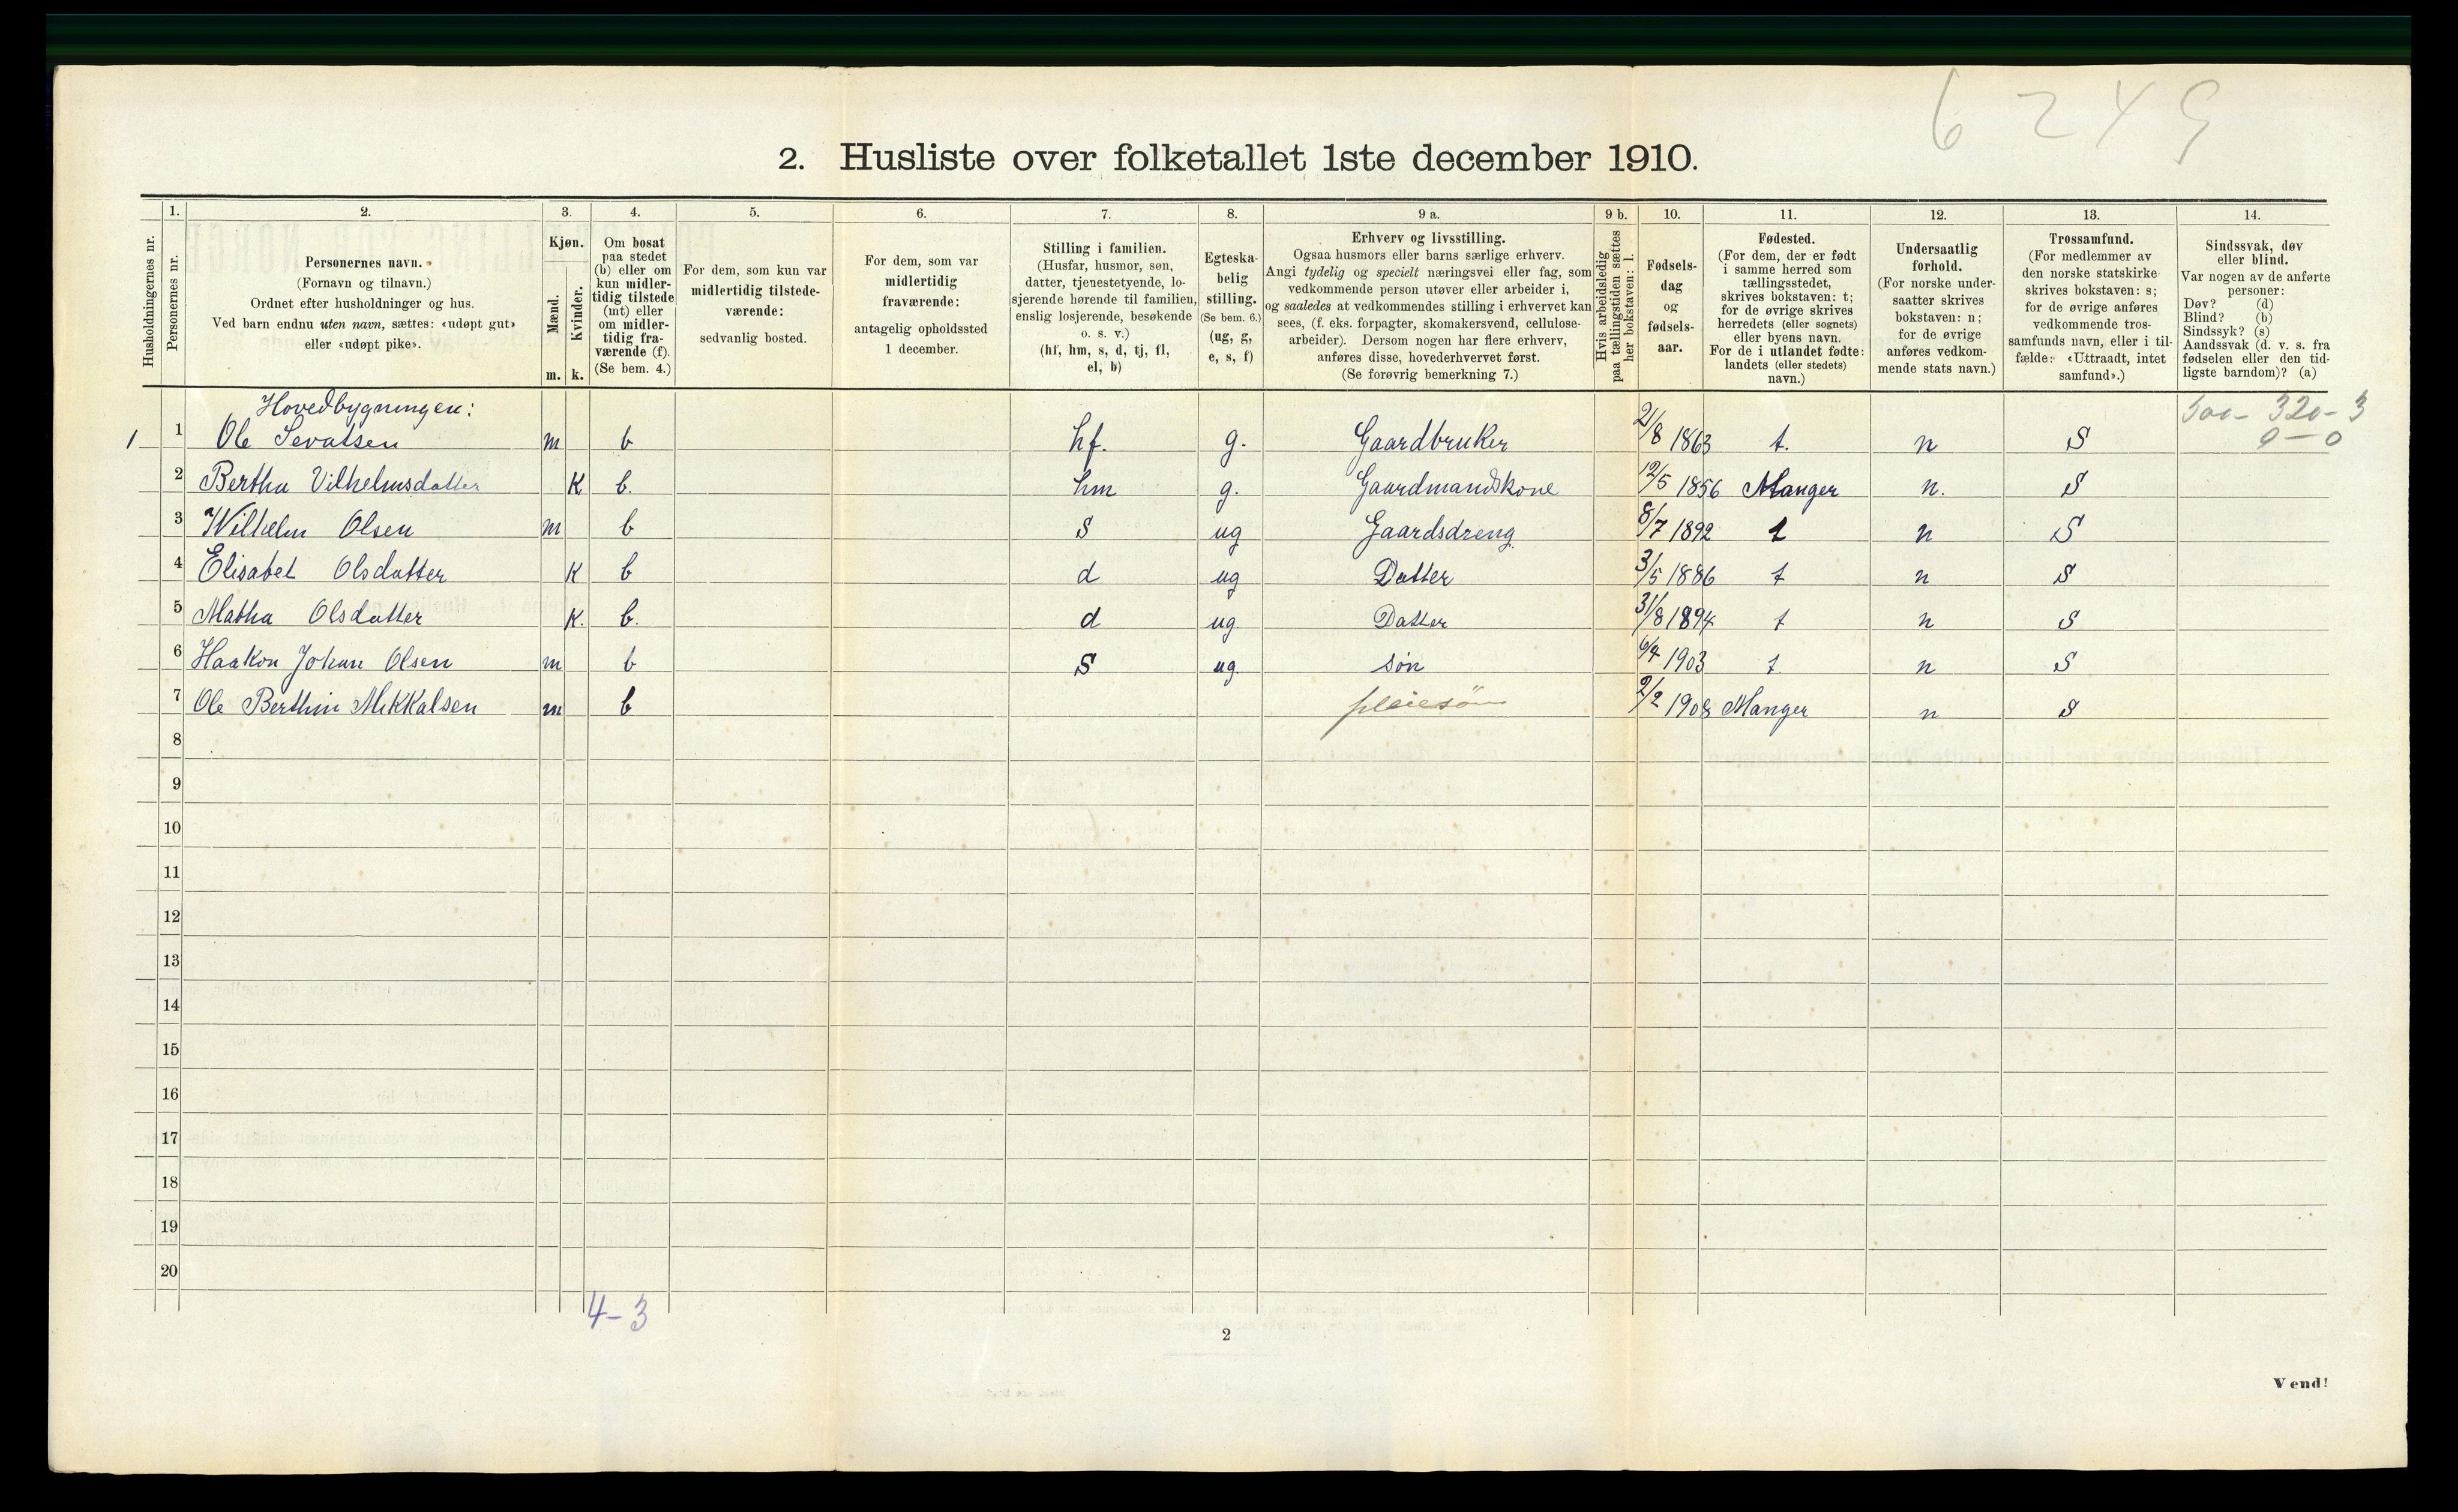 6249
2. Husliste over folketallet 1ste december 1910.
1. 2. 3. 4. 5. 6. 7. 8. 9 a. 9 b. 10. 11. 12. 13. 14.
Husholdningernes nr.
Personernes nr.
Personernes navn.
(Fornavn og tilnavn.)
Ordnet efter husholdninger og hus.
Ved barn endnu uten navn, sættes: «udøpt gut»
eller «udøpt pike».
Kjøn.
Mænd.
Kvinder.
m. k.
Om bosat
paa stedet
(b) eller om
kun midler-
tidig tilstede
(mt) eller
om midler-
tidig fra-
værende (f).
(Se bem. 4.)
For dem, som kun var
midlertidig tilstede-
værende:
sedvanlig bosted.
For dem, som var
midlertidig
fraværende:
antagelig opholdssted
1 december.
Stilling i familien.
(Husfar, husmor, søn,
datter, tjenestetyende, lo-
sjerende hørende til familien,
enslig losjerende, besøkende
o. s. v.)
(hf, hm, s, d, tj, fl,
el, b)
Egteska-
belig
stilling.
(Se bem. 6.)
(ug, g,
e, s, f)
Erhverv og livsstilling.
Ogsaa husmors eller barns særlige erhverv.
Angi tydelig og specielt næringsvei eller fag, som
vedkommende person utøver eller arbeider i,
og saaledes at vedkommendes stilling i erhvervet kan
sees, (f. eks. forpagter, skomakersvend, cellulose-
arbeider). Dersom nogen har flere erhverv,
anføres disse, hovederhvervet først.
(Se forøvrig bemerkning 7.)
Hvis arbeidsledig
paa tællingstiden sættes
her bokstaven: l.
Fødsels-
dag
og
fødsels-
aar.
Fødested.
(For dem, der er født
i samme herred som
tællingsstedet,
skrives bokstaven: t;
for de øvrige skrives
herredets (eller sognets)
eller byens navn.
For de i utlandet fødte:
landets (eller stedets)
navn.)
Undersaatlig
forhold.
(For norske under-
saatter skrives
bokstaven: n;
for de øvrige
anføres vedkom-
mende stats navn.)
Trossamfund.
(For medlemmer av
den norske statskirke
skrives bokstaven: s;
for de øvrige anføres
vedkommende tros-
samfunds navn, eller i til-
fælde: «Uttraadt, intet
samfund».)
Sindssvak, døv
eller blind.
Var nogen av de anførte
personer:
Døv? (d)
Blind? (b)
Sindssyk? (s)
Aandssvak (d. v. s. fra
fødselen eller den tid-
ligste barndom)? (a)
Hovedbygningen:
1 1 Ole Sevatsen m b hf. g. Gaardbruker 21/8 1863 t. n S
2 Bertha Vilhelmsdatter K b. hm g. Gaardmandskone 12/5 1856 Manger n. S
3 Wilhelm Olsen m b S ug Gaardsdreng 8/7 1892 t n S
4 Elisabet Olsdatter K b d ug Datter 3/5 1886 t n S
5 Matha Olsdatter K. b. d ug. Datter 31/8 1894 t n S
6 Haakon Johan Olsen m b S ug. søn 6/4 1903 t. n S
7 Ole Berthin Mikkalsen m b pleiesøn 2/2 1908 Manger n S
320-3
0-0
8
9
10
11
12
13
14
15
16
17
18
19
20
4-3
2
Vend!